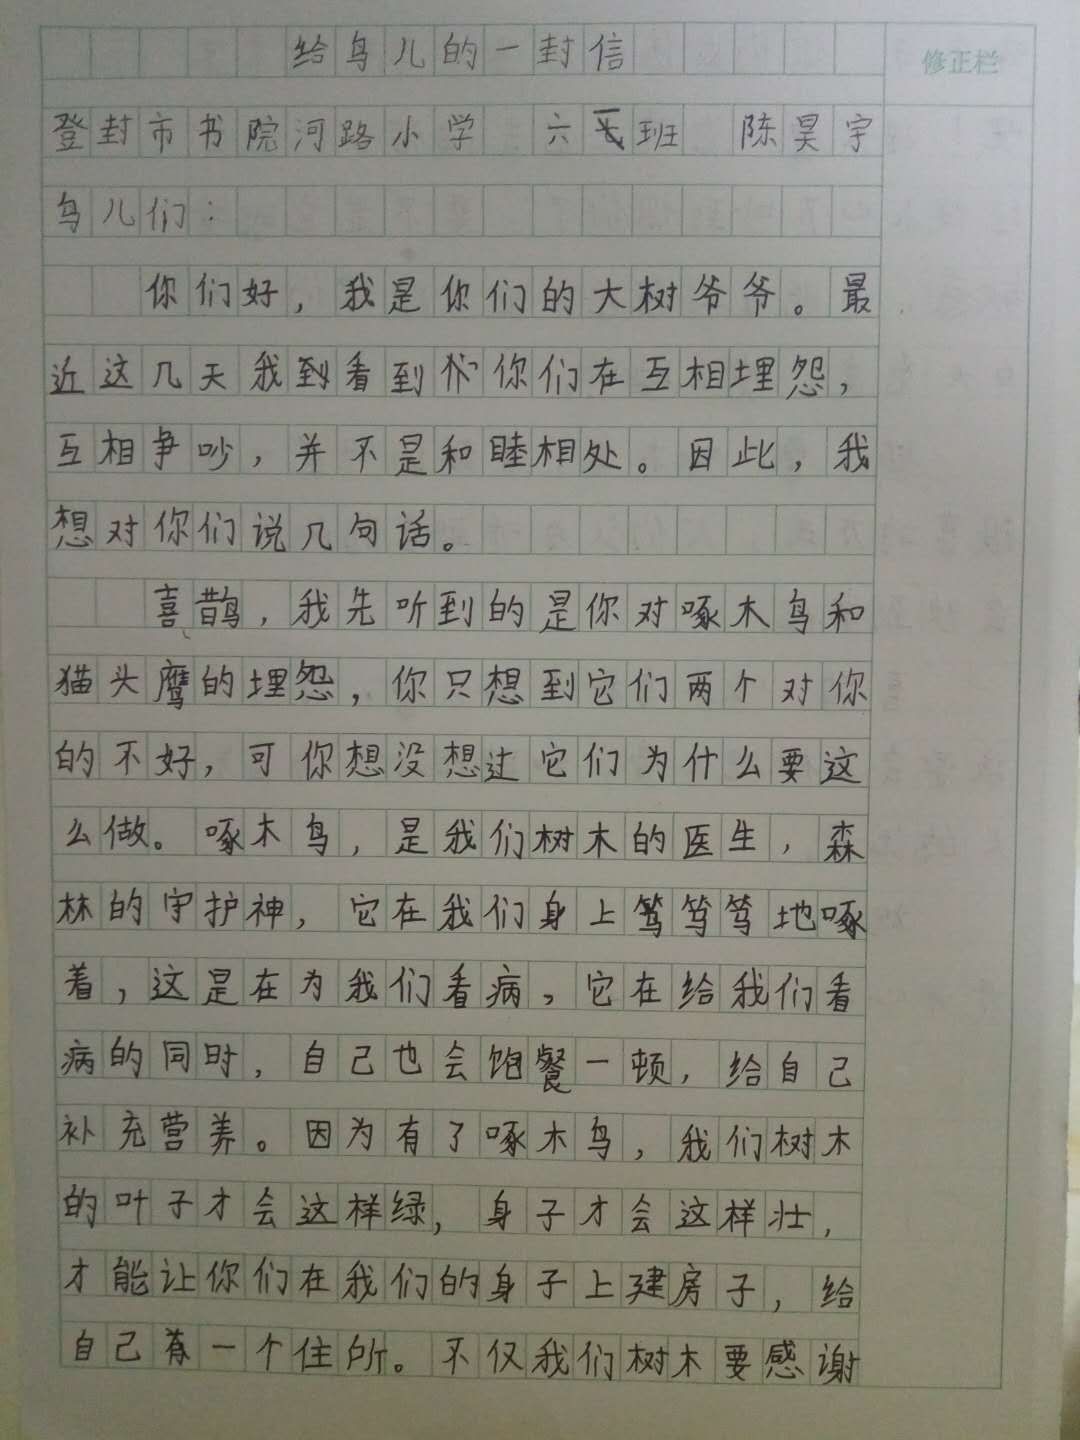 给鸟儿的一封信
修正栏
登封市书院河路小学 六一班 陈昊宇
鸟儿们：
你们好，我是你们的大树爷爷。最
近这几天我到看到你们在互相埋怨，
互相争吵，并不是和睦相处。因此，我
想对你们说几句话。
喜鹊，我先听到的是你对啄木鸟和
猫头鹰的埋怨，你只想到它们两个对你
的不好，可你想没想过它们为什么要这
么做。啄木鸟，是我们树木的医生，森
林的守护神，它在我们身上笃笃笃地啄
着，这是在为我们看病，它在给我们看
病的同时，自己也会饱餐一顿，给自己
补充营养。因为有了啄木鸟，我们树木
的叶子才会这样绿，身子才会这样壮，
才能让你们在我们的身子上建房子，给
自己有一个住所。不仅我们树木要感谢